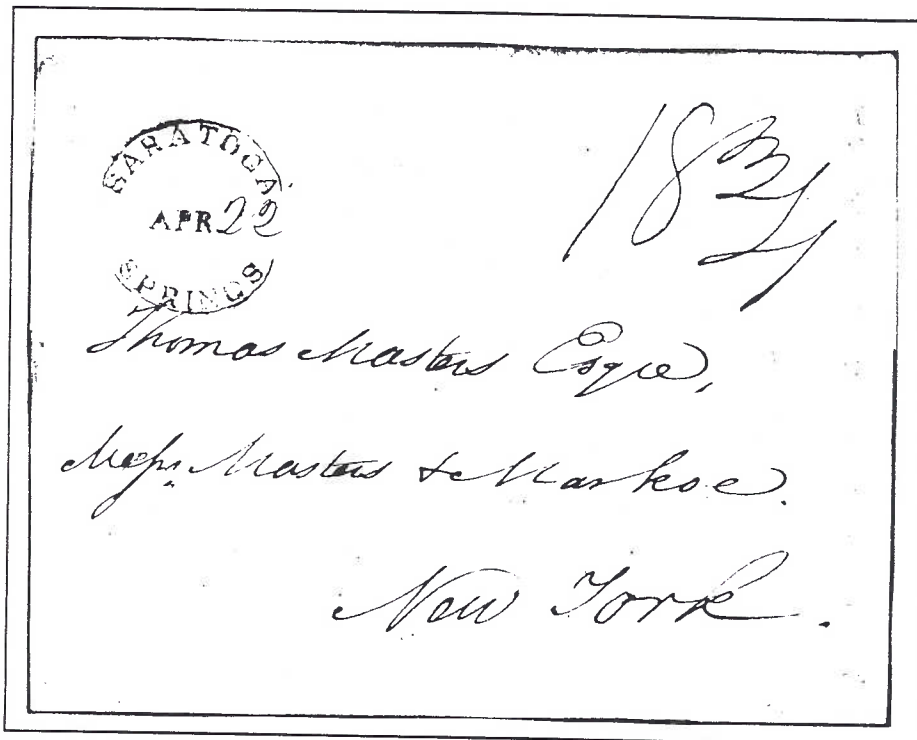 SARATOGA
APR 22
SPRINGS
18 3/4
Thomas Masters Esqre,
Messrs. Masters & Markoe.
New York.